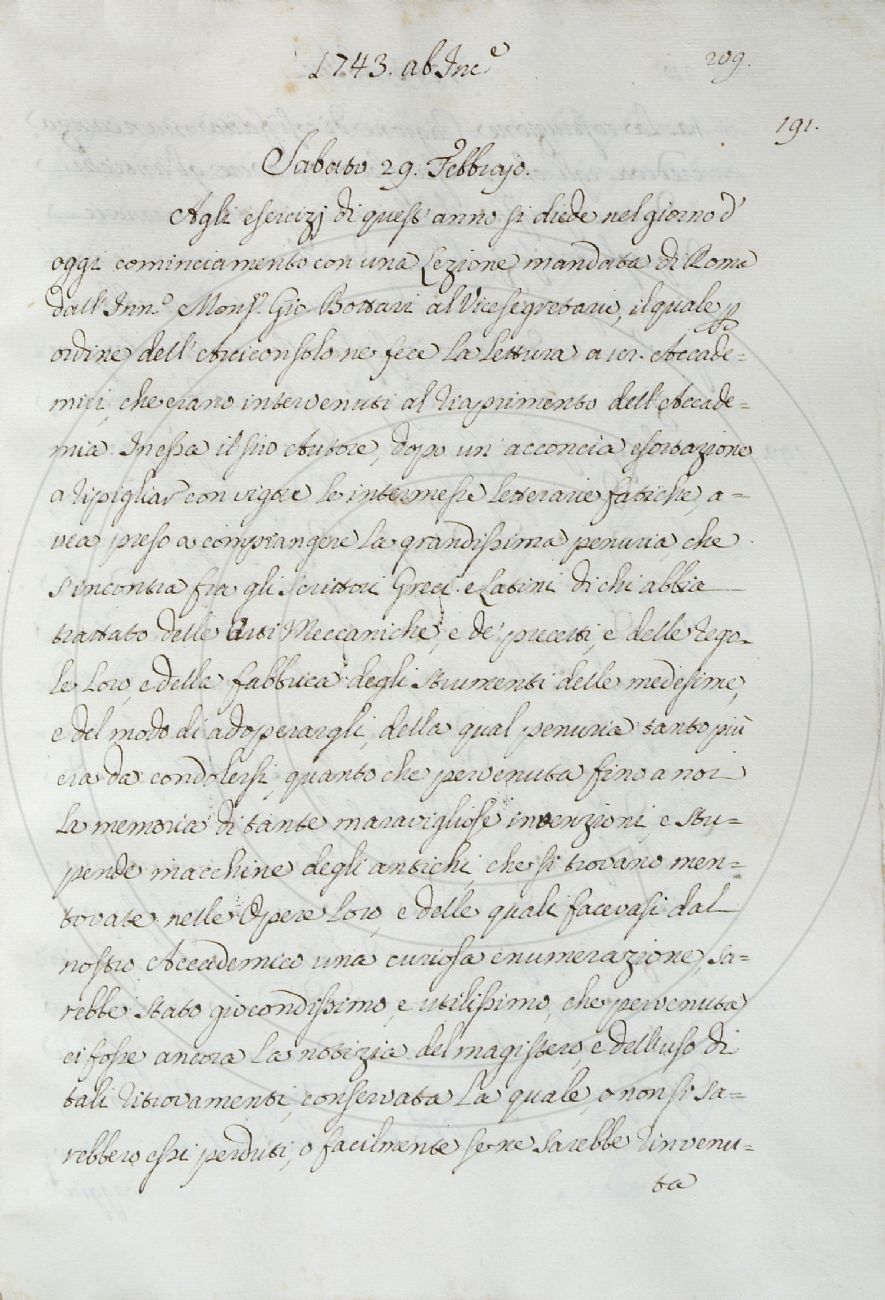 1743. ab Inc.e
209.
191.
Sabato 29. Febbrajo.
Agli esercizj di quest'anno si diede nel giorno d'
oggi cominciamento con una Lezione mandata di Roma
dall' Monsr. Gio Bottari al Vicesegretario, il quale p
ordine dell'Arciconsolo ne fece la lettura a Accade=
mici, che erano intervenuti al riaprimento dell'Accade=
mia. In essa il suo Autore, dopo un'acconcia esortazione
a ripigliar con vigore le intermesse letterarie fatiche, a=
vea preso a compiangere la grandissima penuria, che
s'incontra fra gli Scrittori Greci e Latini di chi abbia
trattato delle Arti Meccaniche, e de' precetti, e delle rego=
le loro, e della fabbrica degli strumenti delle medesime,
e del modo di adoperargli, della qual penuria tanto più
era da condolersi, quanto che pervenuta fino a noi
la memoria di tante maravigliose invenzioni, e stu=
pende macchine degli antichi, che si trovano men=
tovate nelle Opere loro, e delle quali facevasi dal
nostro Accademico una curiosa enumerazione, sa=
rebbe stato giocondissimo, e utilissimo, che pervenuta
ci fosse ancora la notizia del magistero, e dell'uso di
tali ritrovamenti, conservata la quale, o non si sa=
rebbero essi perduti, o facilmente se ne sarebbe rinvenu=
ta